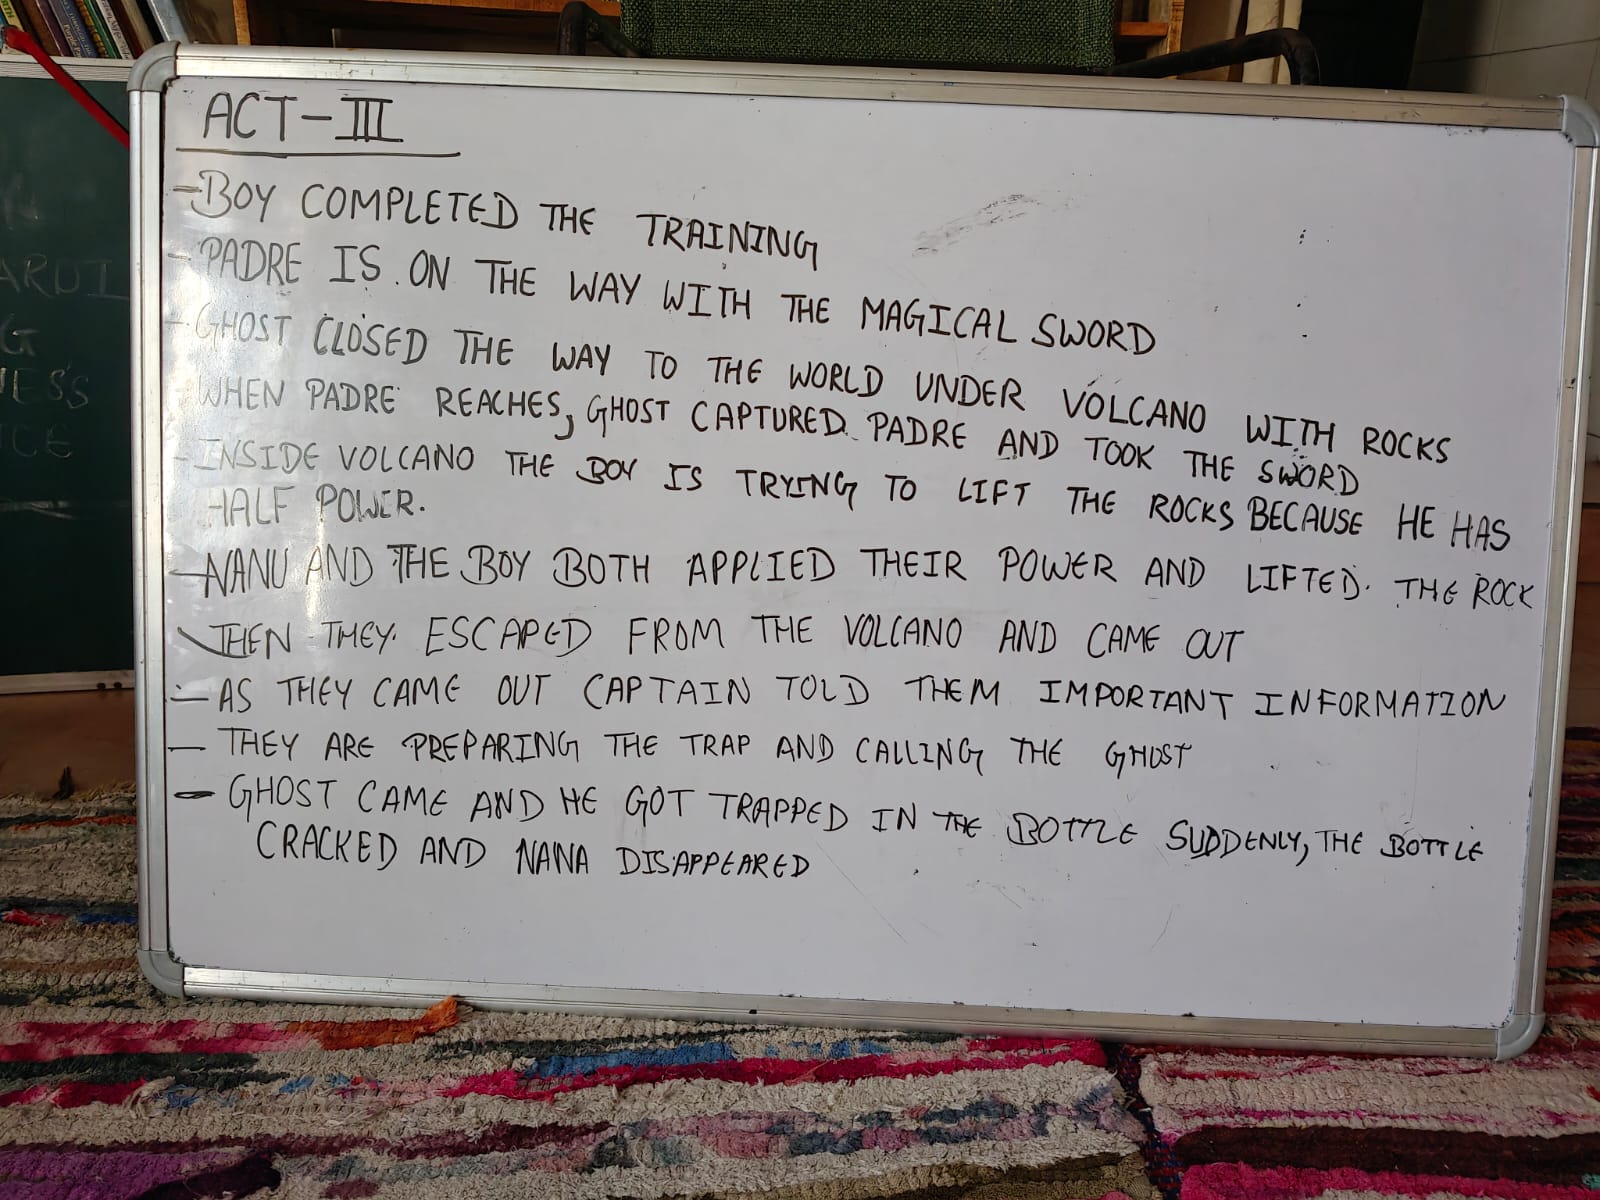 ACT-III
- BOY COMPLETED THE TRAINING
- PADRE IS ON THE WAY WITH THE MAGICAL SWORD
- GHOST CLOSED THE WAY TO THE WORLD UNDER VOLCANO WITH ROCKS
- WHEN PADRE REACHES, GHOST CAPTURED PADRE AND TOOK THE SWORD
- INSIDE VOLCANO THE BOY IS TRYING TO LIFT THE ROCKS BECAUSE HE HAS
HALF POWER.
- NANU AND THE BOY BOTH APPLIED THEIR POWER AND LIFTED. THE ROCK
- THEN THEY ESCAPED FROM THE VOLCANO AND CAME OUT
- AS THEY CAME OUT CAPTAIN TOLD THEM IMPORTANT INFORMATION
- THEY ARE PREPARING THE TRAP AND CALLING THE GHOST
- GHOST CAME AND HE GOT TRAPPED IN THE BOTTLE SUDDENLY, THE BOTTLE
CRACKED AND NANA DISAPPEARED